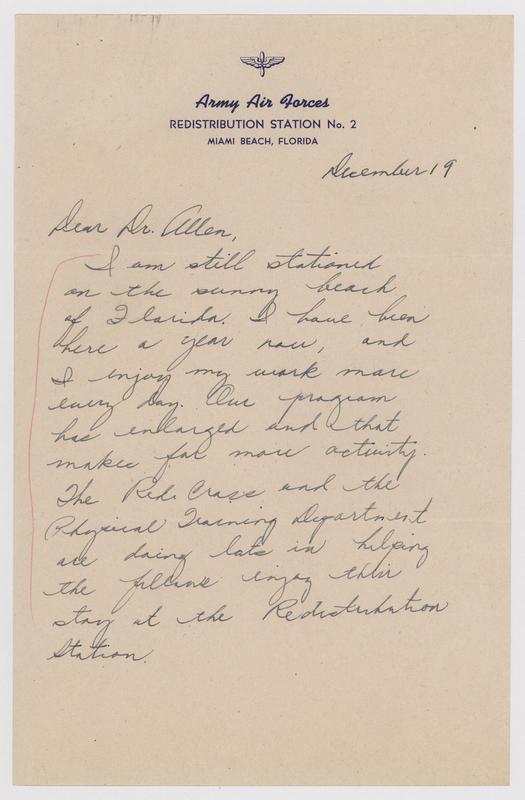 Army Air Forces
REDISTRIBUTION STATION No. 2
MIAMI BEACH, FLORIDA
December 19
Dear Dr. Allen,
I am still stationed
on the sunny beach
of Florida. I have been
here a year now, and
I enjoy my work more
every day. Our program
has enlarged and that
makes for more activity.
The Red Cross and the
Physical Training Department
are doing lots in helping
the fellows enjoy their
stay at the Redistribution
Station.